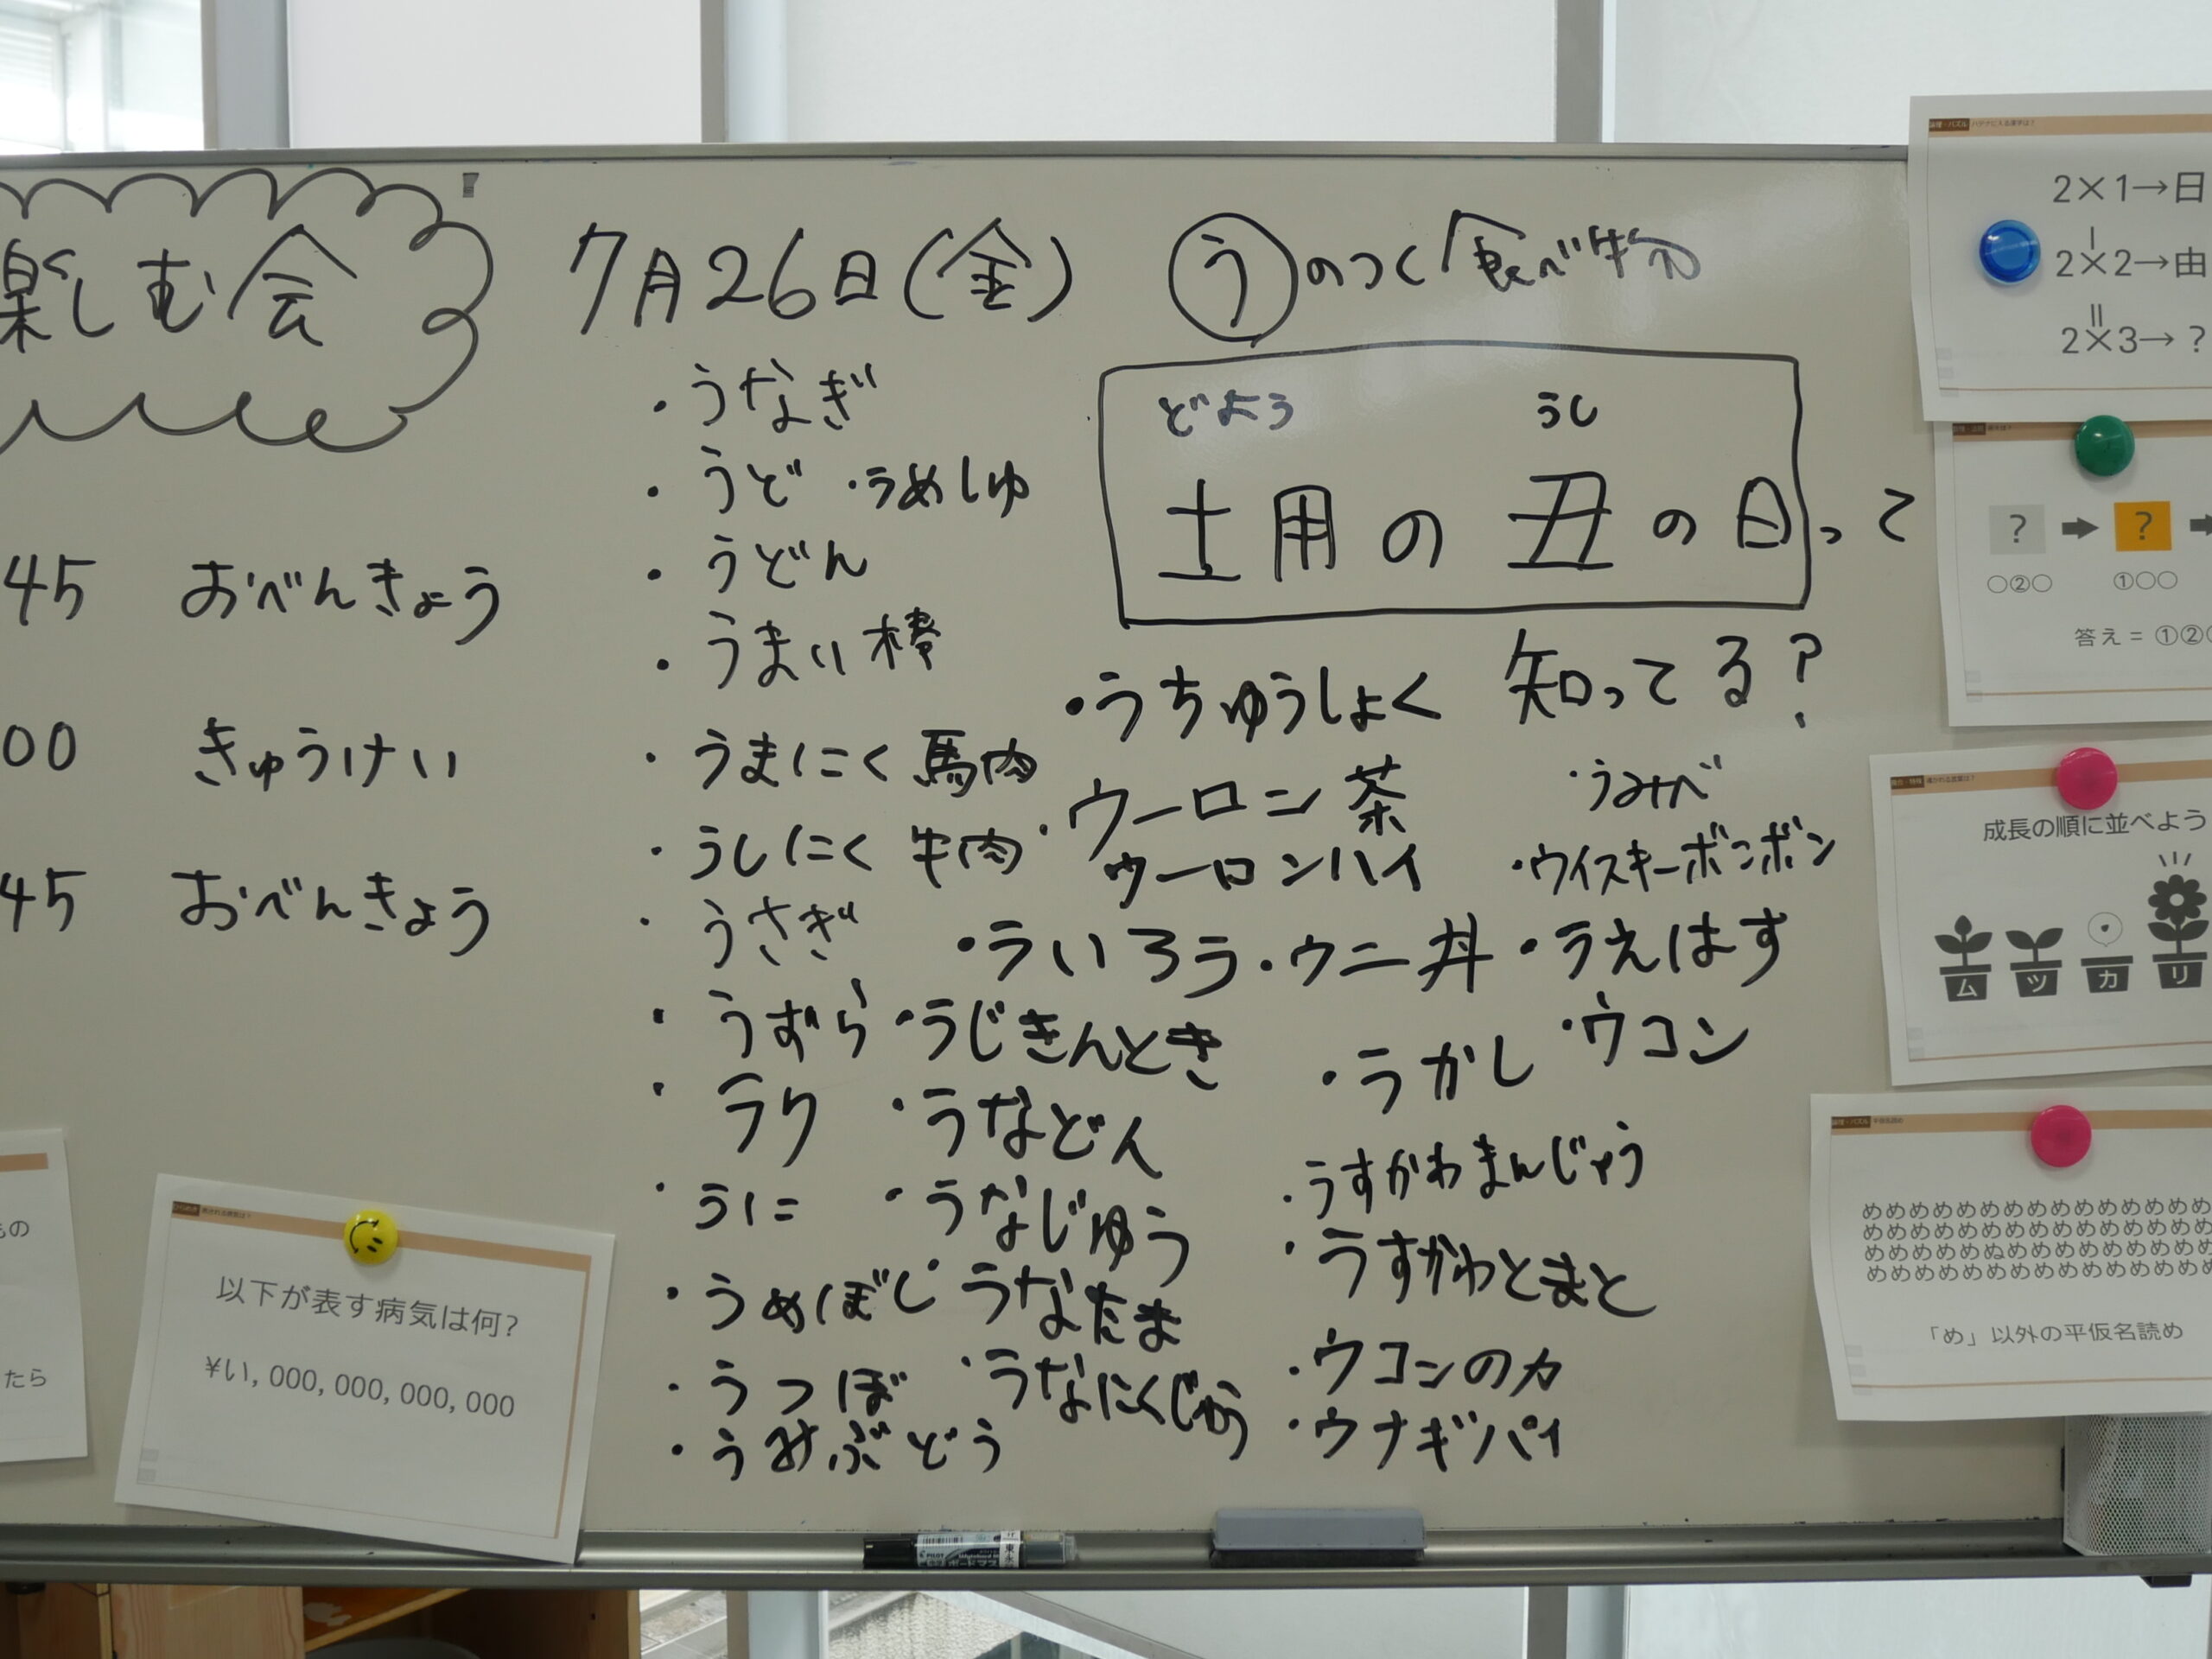 楽しむ会
45 おべんきょう
00 きゅうけい
45 おべんきょう
7月26日(金) うのつく食べ物
どよう うし
土用の丑の日って
知ってる?
・うなぎ
・うど ・うめしゅ
・うどん
・うまい棒
・うまにく 馬肉
・うしにく 牛肉
・うさぎ
・うずら ・うじきんとき
・ラク ・うなどん
・うに ・うなじゅう
・うめぼし ・うなたま
・うつぼ ・うなにくじゅう
・うみぶどう
・うちゅうしょく
・ウーロン茶
ウーロンハイ
・うみべ
・ウイスキーボンボン
・ういろう ・ウニ丼 ・うえはす
・うかし ・ウコン
・うすかわまんじゅう
・うすかわとまと
・ウコンの力
・ウナギパイ
もの
たら
以下が表す病気は何?
¥い,000,000,000,000
2×1→日
2×2→由
2×3→?
? ➡ ? ➡
○②○ ①○○
答え = ①②
成長の順に並べよう
ム ツ カ リ
めめめめめめめめめめめめめめめ
めめめめめめめめめめめめめめめ
めめめめめぬめめめめめめめめめ
めめめめめめめめめめめめめめめ
「め」以外の平仮名読め
PILOT
ボードマスター